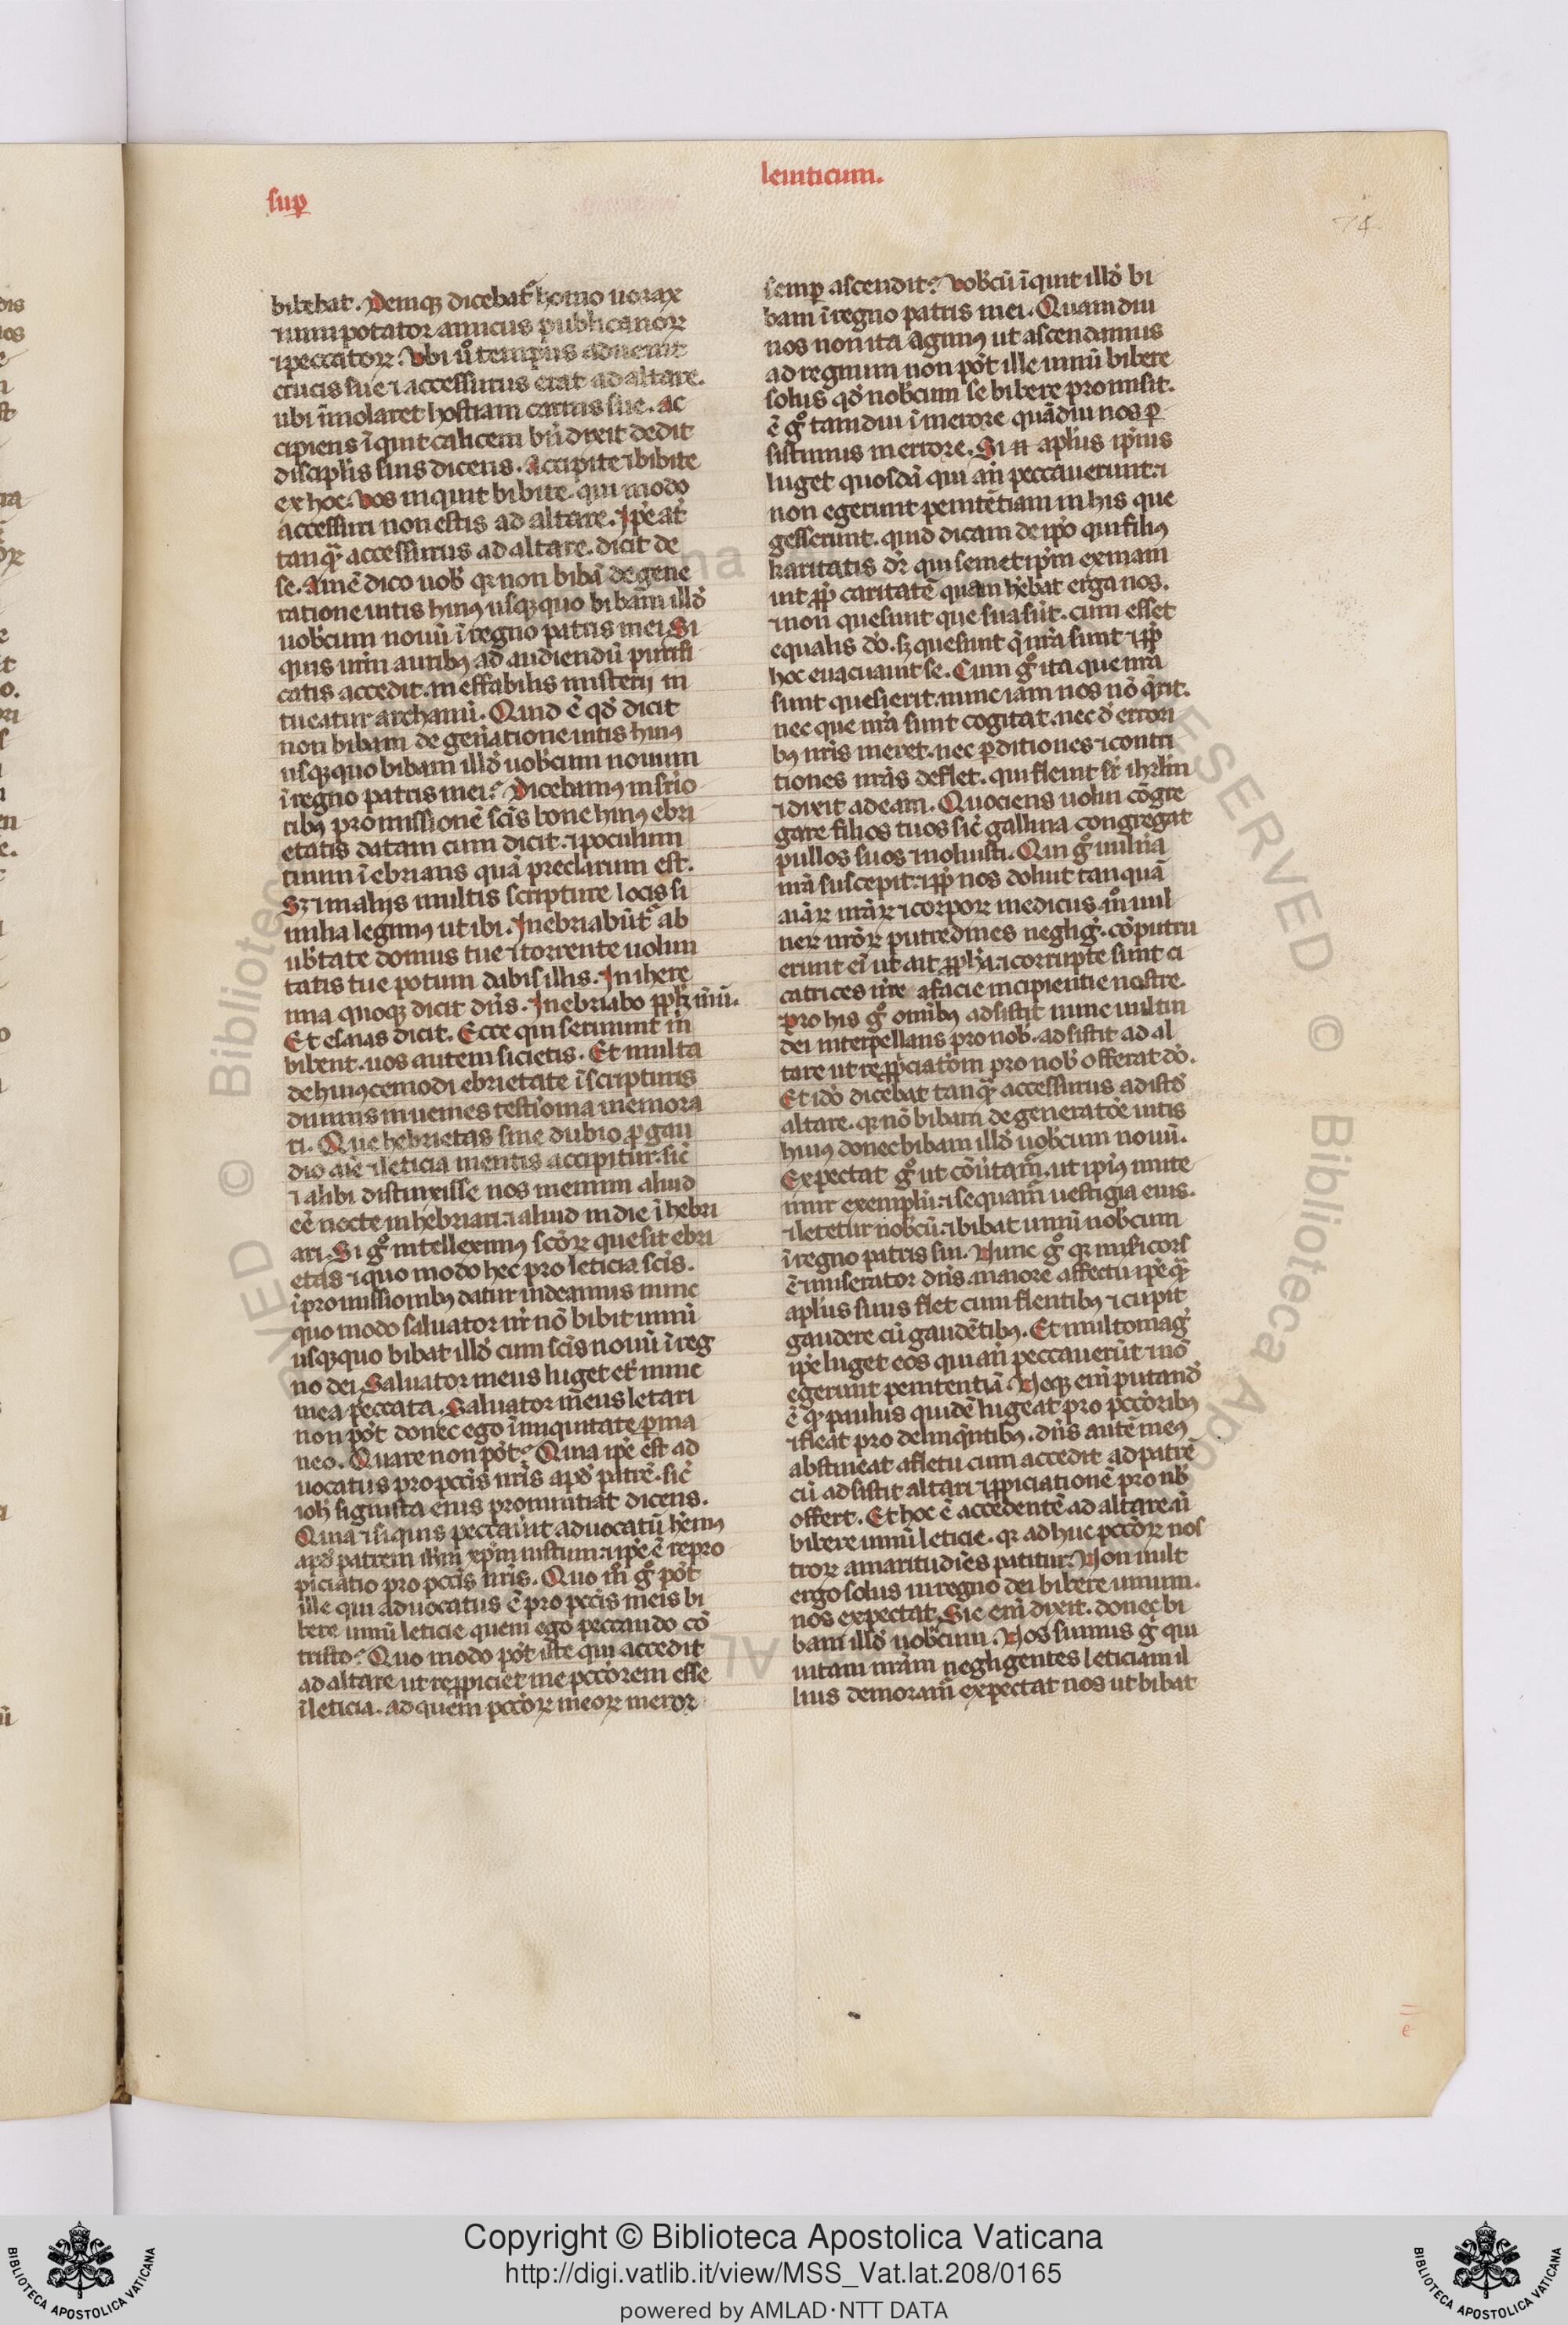 sup̱
leuiticum.
74
bibebat. Deniq; dicebat᷑ homo uorax
⁊ uini potator amicus publicanoꝝ
⁊ peccatoꝝ. Vbi ů tempus aduenit
crucis sue ⁊ accessurus erat ad altare.
ubi ı̄molaret hostiam carnis sue. ac
cipiens ı̄quit calicem bn̄dixit dedit
discipl̓is suis dicens. Accipite ⁊ bibite
ex hoc. Vos inquit bibite. qui modo
accessuri non estis ad altare. Ip̄e aūt
tanq̃ accessurus ad altare. dicit de
se. Amē dico uob̓ qꝛ non bibā de gene
ratione uitis huiꝰ usq; quo bibam illd̓
uob̓cum nouū ı̄ regno patris mei. Si
quis ur̄m auribꝫ ad audiendū purifi
catis accedit. ineffabilis misterij in
tueatur archanū. Quid ē qd̓ dicit
non bibam de gen̄atione uitis huiꝰ
usq; quo bibam illd̓ uob̓cum nouum
ı̄ regno patris mei? Dicebamꝰ in sr̄io
ribꝫ promissionē sc̄is bone huiꝰ ebri
etatis datam cum dicit. ⁊ poculum
tuum ı̄ebrians quā preclarum est.
Sꝫ ⁊ in alijs multis scripture locis si
milia legimꝰ ut ibi. Inebriabūt᷑ ab
ub̓tate domus tue ⁊ torrente uolun
tatis tue potum dabis illis. In ihere
mia quoq; dicit dn̄s. Inebriabo pp̄lꝫ m̄ū.
Et esaias dicit. Ecce qui seruiunt m̄
bibent. uos autem sicietis. Et multa
de huiꝰcemodi ebrietate ı̄ scripturis
diuinis inuenies testı̄onia memora
ri. Que hebrietas sine dubio ꝓ gau
dio aīe ⁊ leticia mentis accipitur. sic̄
⁊ alibi distinxisse nos memini aliud
eē nocte inhebriari. ⁊ aliud in die ı̄hebri
ari. Si g̊ intelleximꝰ sc̄oꝝ que sit ebri
etas ⁊ quo modo hec pro leticia sc̄is.
ı̄ promissionibꝫ datur uideamus nunc
quo modo saluator nr̄ nō bibit uinū
usq; quo bibat illd̓ cum sc̄is nouū ı̄ reg
no dei. Saluator meus luget et̄ nunc
mea peccata. Saluator meus letari
non pōt donec ego ı̄ iniquitate p̱ma
neo. Quare non pōt? Quia ip̄e est ad
uocatus pro pcc̄is nr̄is apd̓ patrē. sic̄
ioh̓ signista eius pronuntiat dicens.
Quia ⁊ si quis peccauit aduocatū hēmꝰ
apd̓ patrem ih̄m xp̄m iustum. ⁊ ip̄e ē repro
piciatio pro pcc̄is nr̄is. Quo m̊ g̊ pōt
ille qui aduocatus ē pro pcc̄is meis bi
bere uinū leticie quem ego peccando cō
tristo? Quo modo pōt iste qui accedit
ad altare ut rep̄piciet me pcc̄orem esse
ı̄ leticia. ad quem pcc̄oꝝ meoꝝ meror
semp̱ ascendit? Vob̓cū ı̄quit illd̓ bi
bam ı̄ regno patris mei. Quam diu
nos non ita agimꝰ ut ascendamus
ad regnum non pōt ille uinū bibere
solus qd̓ nob̓cum se bibere promisit.
ē g̊ tam diu ı̄ merore quādiu nos p̱
sistimus in errore. Si .n. apl̓us ip̄ius
luget quosdā qui an̄ peccauerunt. ⁊
non egerunt penitētiam in his que
gesserunt. quid dicam de ip̄o qui filiꝰ
karitatis dr̄ qui semet ip̄m exinani
uit pp̄ caritatē quam hēbat erga nos.
⁊ non quesiuit que sua sūt. cum esset
equalis do̓. sꝫ quesiuit q̄ nr̄a sunt ⁊ pp̄
hoc euacuauit se. Cum g̊ ita que nr̄a
sunt quesierit. nunc iam nos nō q̄rit.
nec que nr̄a sunt cogitat. nec d̓ errori
bꝫ nr̄is meret. nec p̱ditiones ⁊ contri
tiones nr̄as deflet. qui fleuit sr̄ ihrl̄m
⁊ dixit ad eam. Quociens uolui cōgre
gare filios tuos sic̄ gallina congregat
pullos suos ⁊ noluisti. Qui g̊ uuln̄a
nr̄a suscepit. ⁊ pp̄ nos doluit tanquā
aīaꝝ nr̄aꝝ ⁊ corpoꝝ medicus. m̊ uul
neꝝ nr̄oꝝ putredines neglig̓. cōputru
erunt eı̄ ut ait pp̄h̓a. ⁊ corrupte sunt ci
catrices nr̄e a facie incipientie nostre.
Pro his g̊ omibꝫ adsistit nunc uultui
dei interpellans pro nob̓. adsistit ad al
tare ut rep̄piciatōm pro nob̓ offerat do̓.
Et ido̓ dicebat tanq̃ accessurus ad istd̓
altare. qꝛ nō bibam de generatōe uitis
huiꝰ donec bibam illd̓ uob̓cum nouū.
Expectat g̊ ut cōuertam᷑. ut ipiꝰ imite
mur exemplū. ⁊ sequam᷑ uestigia eius.
⁊ letetur nob̓cū. ⁊ bibat uinū nob̓cum
ı̄ regno patris sui. Nunc g̊ qꝛ misericors
ē ⁊ miserator dn̄s. maiore affectu ip̄e q̃
apl̓us suus flet cum flentibꝫ ⁊ cupit
gaudere cū gaudētibꝫ. Et multo mag̓
ip̄e luget eos qui an̄ peccauerūt ⁊ nō
egerunt penitentiā. Neq; em̄ putand̓
ē qꝛ paulus quidē lugeat pro pcc̄oribꝫ
⁊ fleat pro delinq̄ntibꝫ. dn̄s autē meꝰ
abstineat a fletu cum accedit ad patrē
cū adsistit altari ⁊ pp̄iciationē pro nb̓
offert. Et hoc ē accedentē ad altare n̄
bibere uinū leticie. qꝛ ad huc pcc̄oꝝ nos
troꝝ amaritudīes patitur. Non uult
ergo solus in regno dei bibere uinum.
nos expectat. Sic em̄ dixit. donec bi
bam illd̓ uob̓cum. Nos sumus g̊ qui
uitam nr̄am negligentes leticiam il
lius demoram᷑ expectat nos ut bibat
Copyright © Biblioteca Apostolica Vaticana
http://digi.vatlib.it/view/MSS_Vat.lat.208/0165
powered by AMLAD·NTT DATA
BIBLIOTECA APOSTOLICA VATICANA
BIBLIOTECA APOSTOLICA VATICANA